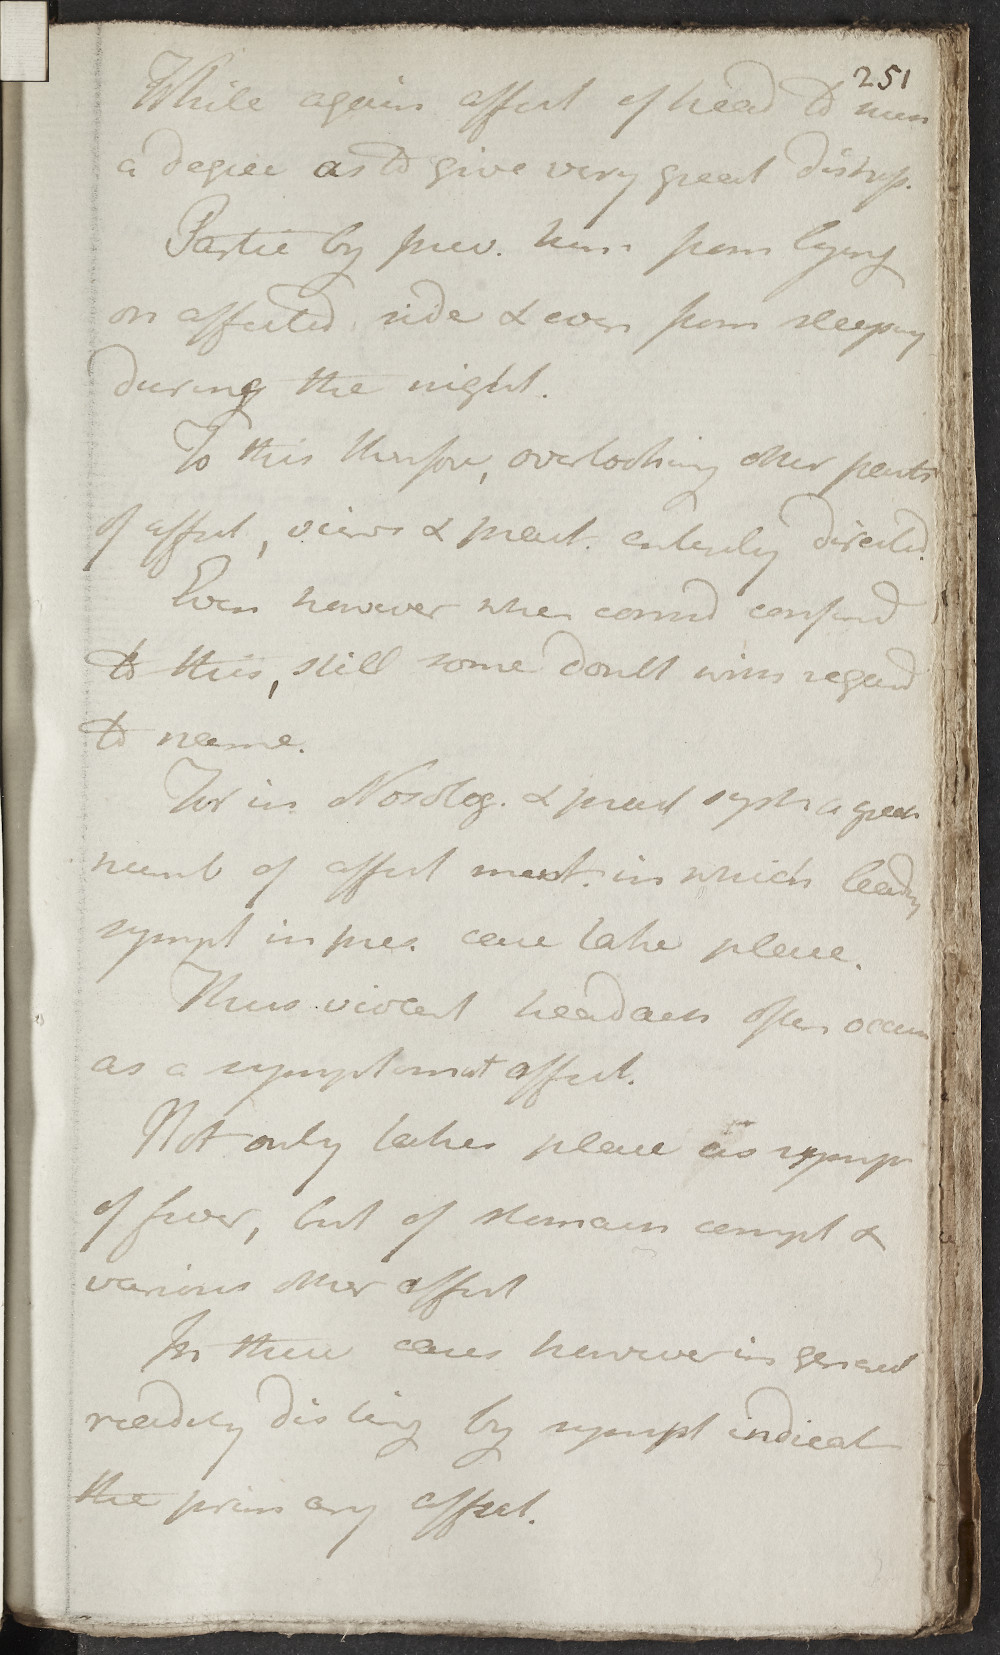 251
While again affect of head to such
a degree as to give very great distress.
Partic by prev. him from lying
on affected side & even from sleeping
during the night.
To this therefore, overlooking other parts
of affect, views & pract. entirely directed.
Even however when consid confined
to this, still some doubt with regard
to name.
For in Nosolog. & pract syst a great
numb of affect ment. in which leading
sympt in pres. case take place.
Thus violent headach often occurs
as a symptomat affect.
Not only takes place as symp
of fever, but of stomach compl &
various other affect
In these cases however in general
readily disting by sympt indicat
the primary affect.